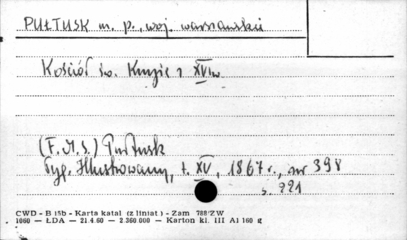 PUŁTUSK m. p., woj. warszawskie
Kościół św. Krzyża z XVI w.
(F.M.S.) Pułtusk
Tyg. Illustrowany, t. XV, 1867 r., nr 398
s. 221
CWD - B 15b - Karta katal (z liniat) - Zam 788/ZW
1060 — ŁDA — 21.4.60 — 2.360.000 — Karton kl. III A1 160 g